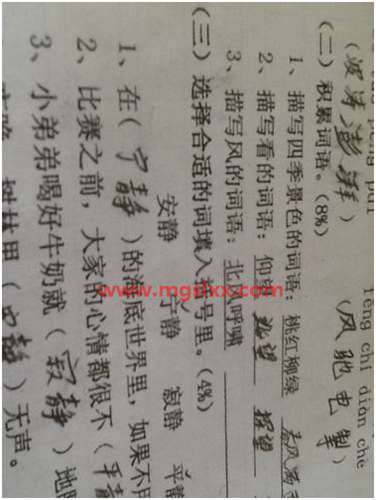 pēng pài fēng chí diàn chè
（波涛澎湃） （风驰电掣）
（二）积累词语。(8%)
1、描写四季景色的词语：桃红柳绿
2、描写看的词语：仰 眺望 探望
3、描写风的词语：北 呼啸
（三）选择合适的词填入括号里。(4%)
安静 宁静 寂静 平静
1、在（宁静）的海底世界里，如果不用
2、比赛之前，大家的心情都很不（平静
3、小弟弟喝好牛奶就（寂静）地
树林里（宁静）无声。